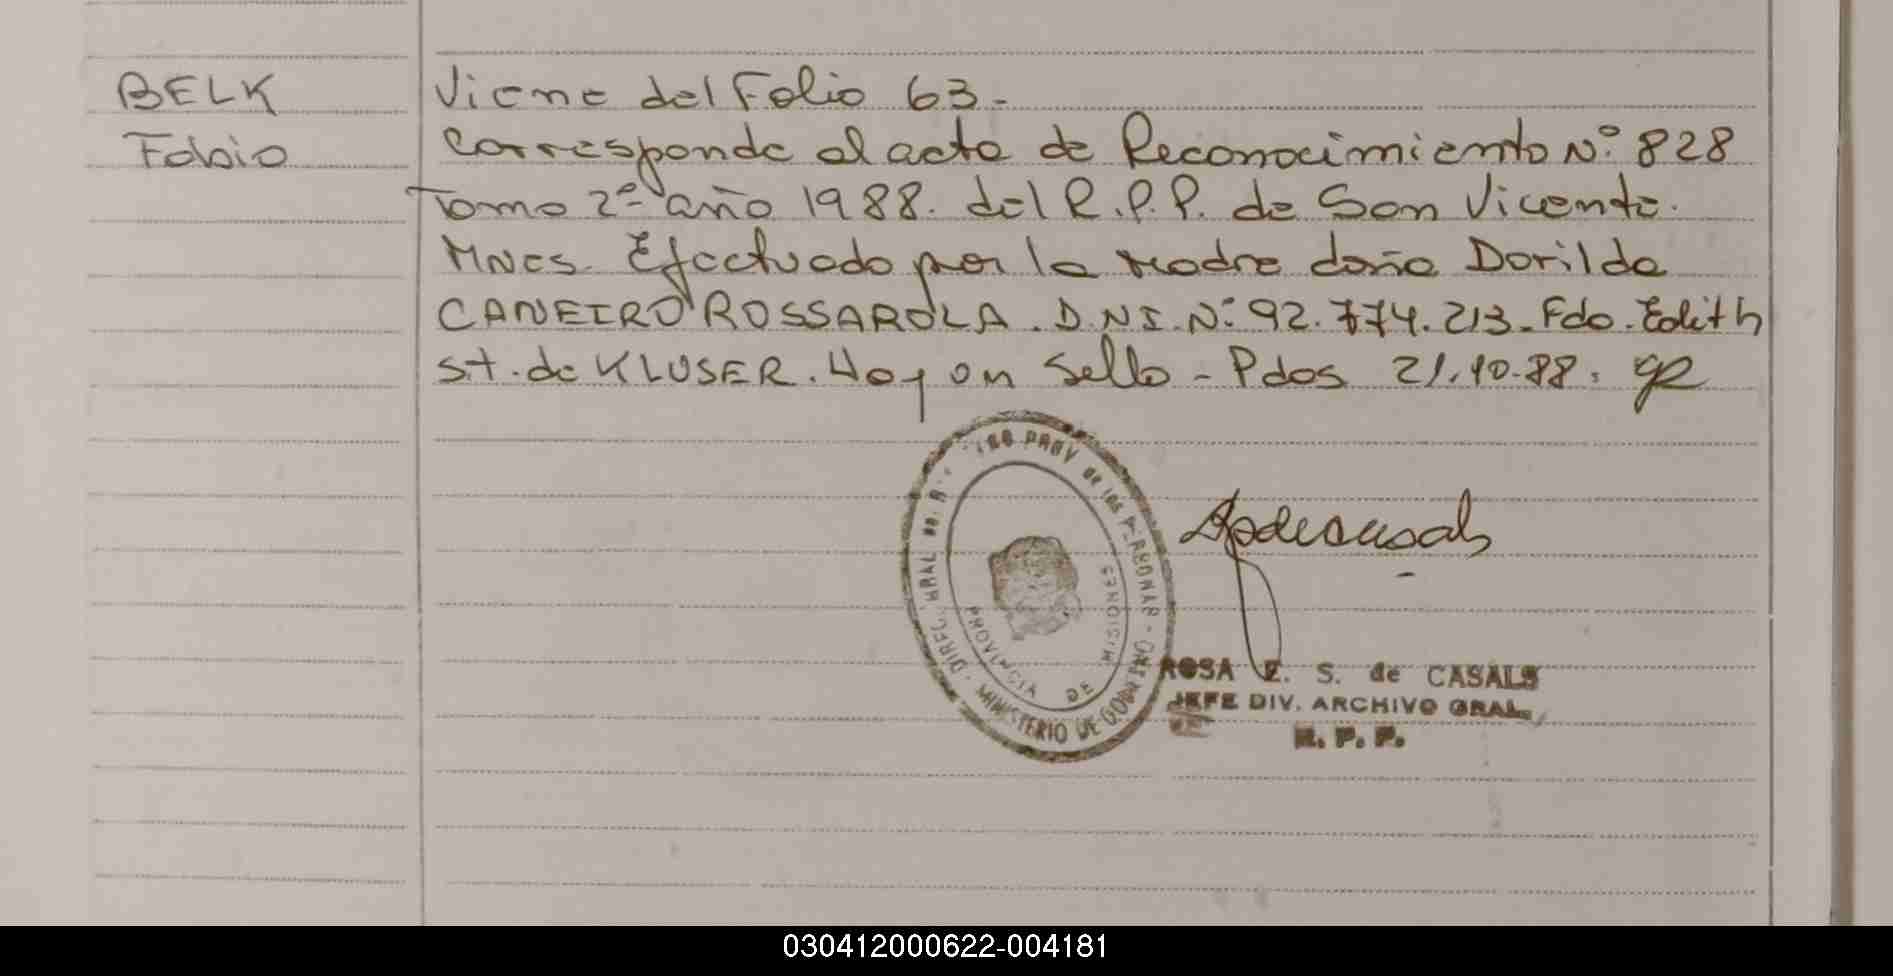 BELK
Fabio
Viene del Folio 63.-
Corresponde al acta de Reconocimiento N° 828
Tomo 2° año 1988. del R.P.P. de San Vicente.
Mnes. Efectuado por la madre doña Dorilda
CANEIRO ROSSAROLA. D.N.I. N° 92.774.213.- Fdo. Edith
st. de KLUSER. Hay un Sello - Pdos 21.10.88.
PROV de las PERSONAS
DIREC. GRAL
MINISTERIO DE GOBIERNO
PROVINCIA DE MISIONES
ROSA E. S. de CASALS
JEFE DIV. ARCHIVO GRAL.
R. P. P.
030412000622-004181